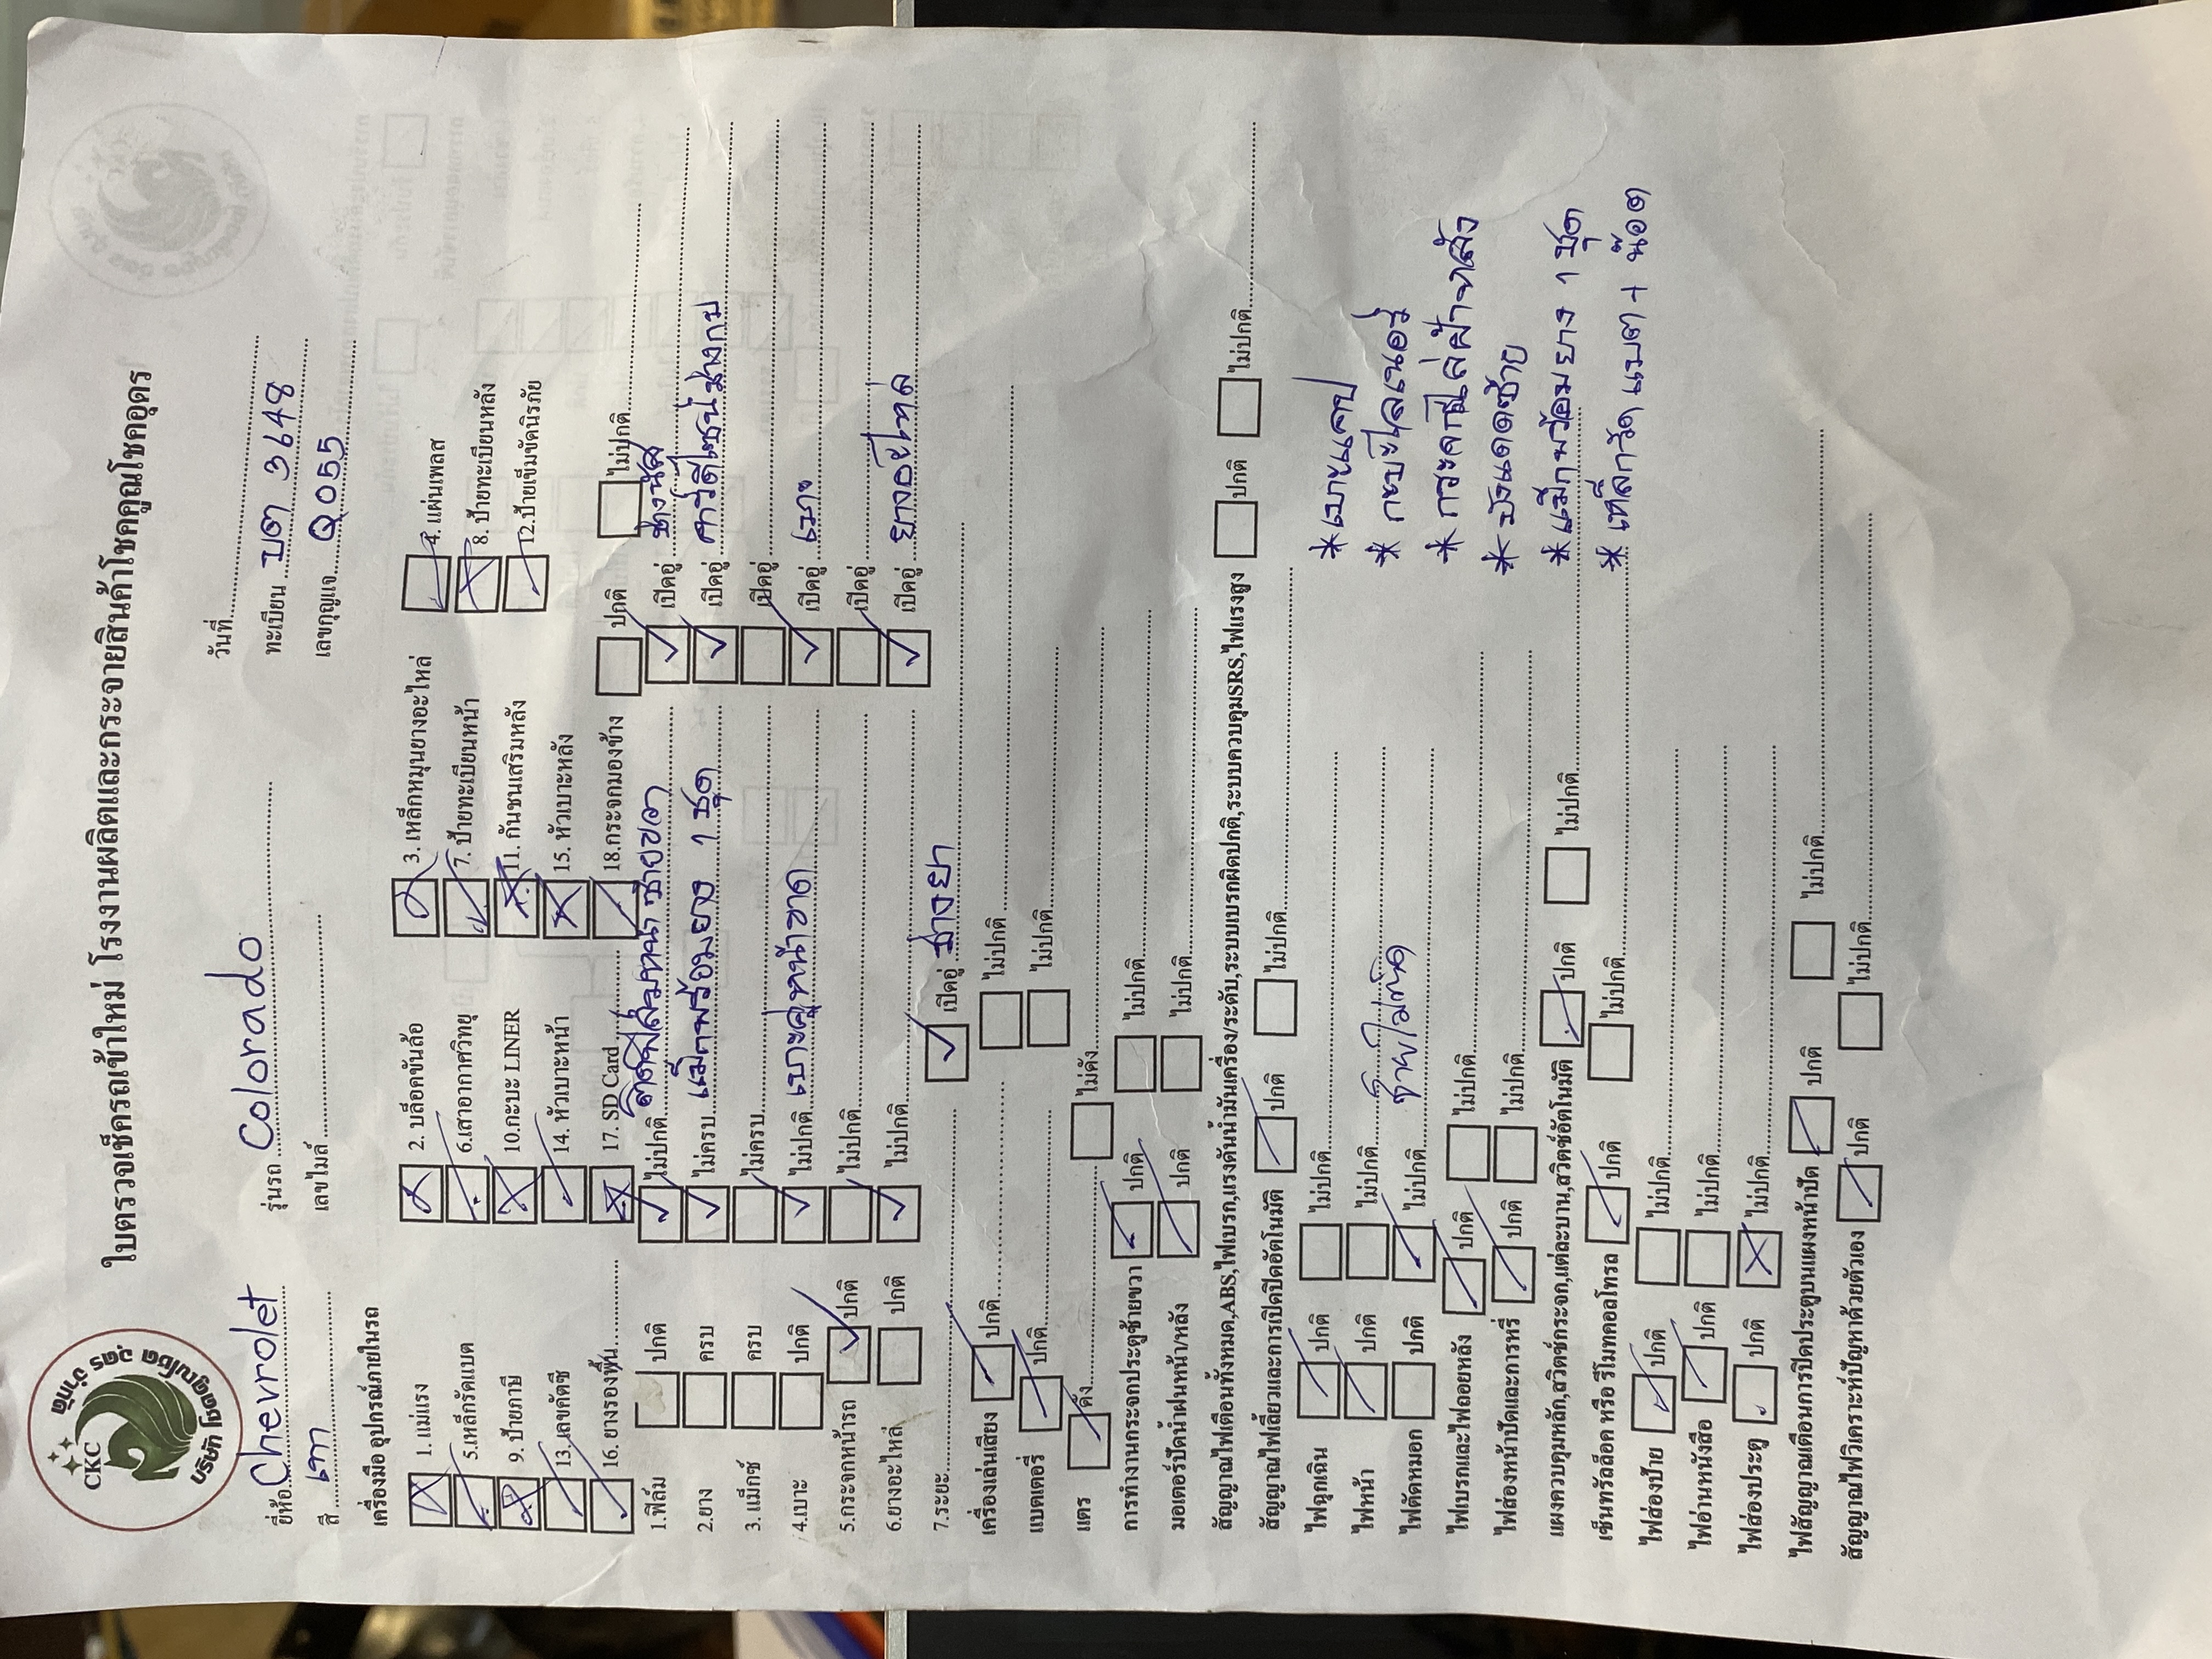 CKC
บริษัท โชคคูณโชค อุดร จำกัด
ใบตรวจเช็ครถเข้าใหม่ โรงงานผลิตและกระจายสินค้าโชคคูณโชคอุดร
วันที่
ยี่ห้อ Chevrolet รุ่นรถ Colorado ทะเบียน บต 3648
สี เทา เลขไมล์ เลขกุญแจ Q055
เครื่องมือ อุปกรณ์ภายในรถ
1. แม่แรง 2. บล็อคขันล้อ 3. เหล็กหมุนยางอะไหล่ 4. แผ่นเพลส
5.เหล็กรัดแบต 6.เสาอากาศวิทยุ 7. ป้ายทะเบียนหน้า 8. ป้ายทะเบียนหลัง
9. ป้ายภาษี 10.กะบะ LINER 11. กันชนเสริมหลัง 12.ป้ายเข็มขัดนิรภัย
13.เลขคัตซี 14. หัวเบาะหน้า 15. หัวเบาะหลัง
16. ยางรองพื้น 17. SD Card 18.กระจกมองข้าง ปกติ ไม่ปกติ
1.ฟิล์ม ปกติ ไม่ปกติ ติดฟิล์มหน้า ซ้ายขวา เปิดอยู่ ช่างนัส
2.ยาง ครบ ไม่ครบ แม็กพร้อมยาง 1 ชุด เปิดอยู่ คาร์ดีไซน์ช่างกบ
3. แม็กซ์ ครบ ไม่ครบ เปิดอยู่
4.เบาะ ปกติ ไม่ปกติ เบาะคู่หน้าขาด เปิดอยู่ เมาะ
5.กระจกหน้ารถ ปกติ ไม่ปกติ เปิดอยู่
6.ยางอะไหล่ ปกติ ไม่ปกติ เปิดอยู่ ยางอะไหล่
7.ระยะ เปิดอยู่ ช่างยา
เครื่องเล่นเสียง ปกติ ไม่ปกติ
แบตเตอรี่ ปกติ ไม่ปกติ
แตร ดัง ไม่ดัง
การทำงานกระจกประตูซ้ายขวา ปกติ ไม่ปกติ
มอเตอร์ปัดน้ำฝนหน้า/หลัง ปกติ ไม่ปกติ
สัญญาณไฟเตือนทั้งหมด,ABS,ไฟเบรก,แรงดันน้ำมันเครื่อง/ระดับ,ระบบเบรกผิดปกติ,ระบบควบคุมSRS,ไฟแรงสูง ปกติ ไม่ปกติ
สัญญาณไฟเลี้ยวและการเปิดปิดอัตโนมัติ ปกติ ไม่ปกติ
ไฟฉุกเฉิน ปกติ ไม่ปกติ *เบาะแคป
ไฟหน้า ปกติ ไม่ปกติ ซ้ายไม่ติด * กะบะไลเนอร์
ไฟตัดหมอก ปกติ ไม่ปกติ * กระจกใส่ฝ้าหลัง
ไฟเบรกและไฟถอยหลัง ปกติ ไม่ปกติ * บังแดดซ้าย
ไฟส่องหน้าปัดและการหรี่ ปกติ ไม่ปกติ *แม็กพร้อมยาง 1 ชุด
แผงควบคุมหลัก,สวิตช์กระจก,แต่ละบาน,สวิตช์อัตโนมัติ ปกติ ไม่ปกติ * เหล็กรัดแบต + น๊อต
เซ็นทรัลล็อค หรือ รีโมทคอลโทรล ปกติ ไม่ปกติ
ไฟส่องป้าย ปกติ ไม่ปกติ
ไฟอ่านหนังสือ ปกติ ไม่ปกติ
ไฟส่องประตู ปกติ ไม่ปกติ
ไฟสัญญาณเตือนการปิดประตูบนแผงหน้าปัด ปกติ ไม่ปกติ
สัญญาณไฟวิเคราะห์ปัญหาด้วยตัวเอง ปกติ ไม่ปกติ